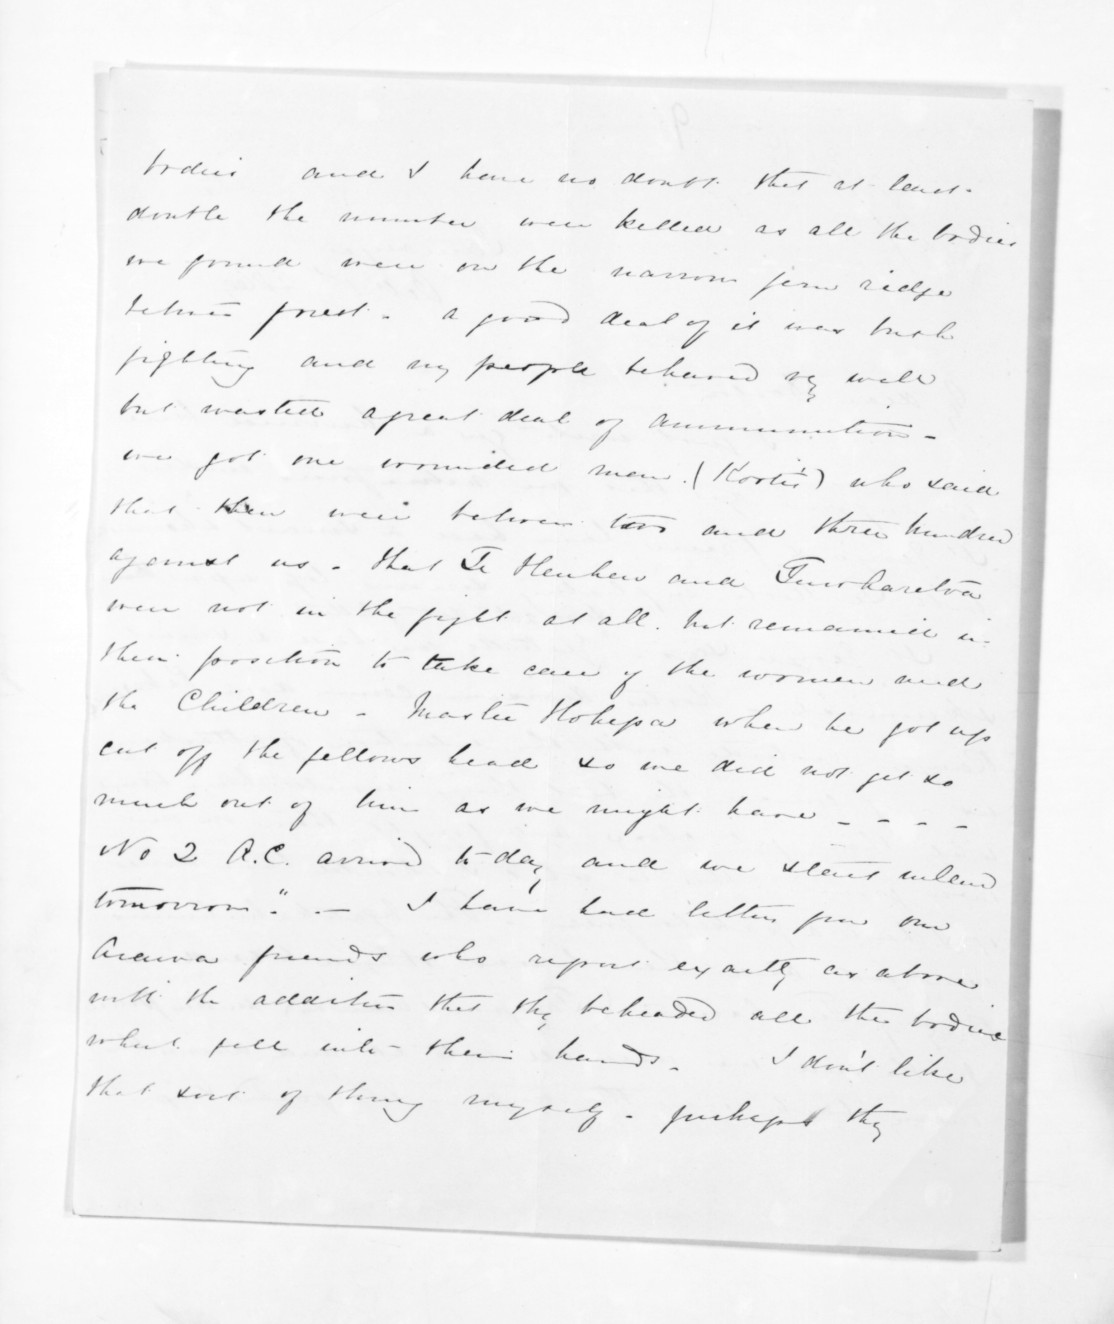 bodies and I have no doubt that at least
double the number were killed as all the bodies
we found were on the narrow fern ridge
between forest - a good deal of it was bush
fighting and my people behaved vy well
but wasted a great deal of ammunition -
we got one wounded man. (Kooti's) who said
that there were between two and three hundred
against us - that Te Heuheu and
were not in the fight at all. but remained in
their position to take care of the women and
the Children - Master Hohepa when he got up
cut off the fellows head so we did not get so
much out of him as we might have - - - -
No 2 A.C. arrived today and we start inland
tomorrow." - I have had letters from our
Arawa friends who report exactly as above
with the addition that they beheaded all the bodies
what fell into their hands - I don't like
that sort of thing myself - perhaps they